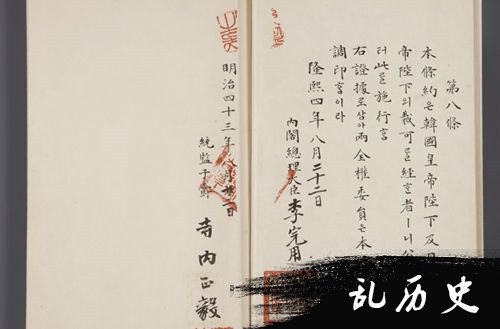 第八條
本條約은韓國皇帝陛下及
帝陛下의裁可를經한者ㅣ니公
터此를施行홈
右證據로삼아兩全權委員은本
調印홈이라
隆熙四年八月二十二日
內閣總理大臣 李完用
明治四十三年八月廿二日
統監子爵 寺內正毅
乱历史